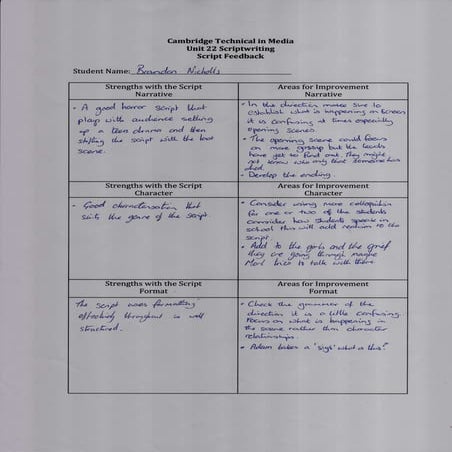 Cambridge Technical in Media
Unit 22 Scriptwriting
Script Feedback
Student Name: Brandon Nicholls
Strengths with the Script
Narrative
- A good horror script that
plays with audience setting
up a teen drama and then
shifting the script with the last
scene.
Areas for Improvement
Narrative
- In the direction make sure to
establish what is happening on screen
it is confusing at times especially
opening scenes.
- The opening scene could focus
on more gossip but the leads
have yet to find out. They might
not know who only that someone has
died.
- Develop the ending.
Strengths with the Script
Character
- Good characterisation that
suits the genre of the script.
Areas for Improvement
Character
- Consider using more colloquialism
for one or two of the students
consider how students speak in
school this will add realism to the
script.
- Add to the girls and the grief
they are going through maybe
Mark tries to talk with them.
Strengths with the Script
Format
The script uses formatting
effectively throughout is well
structured.
Areas for Improvement
Format
- Check the grammar of the
direction it is a little confusing.
Focus on what is happening in
the scene rather than character
relationships.
- Adam takes a 'sigh' what is this?